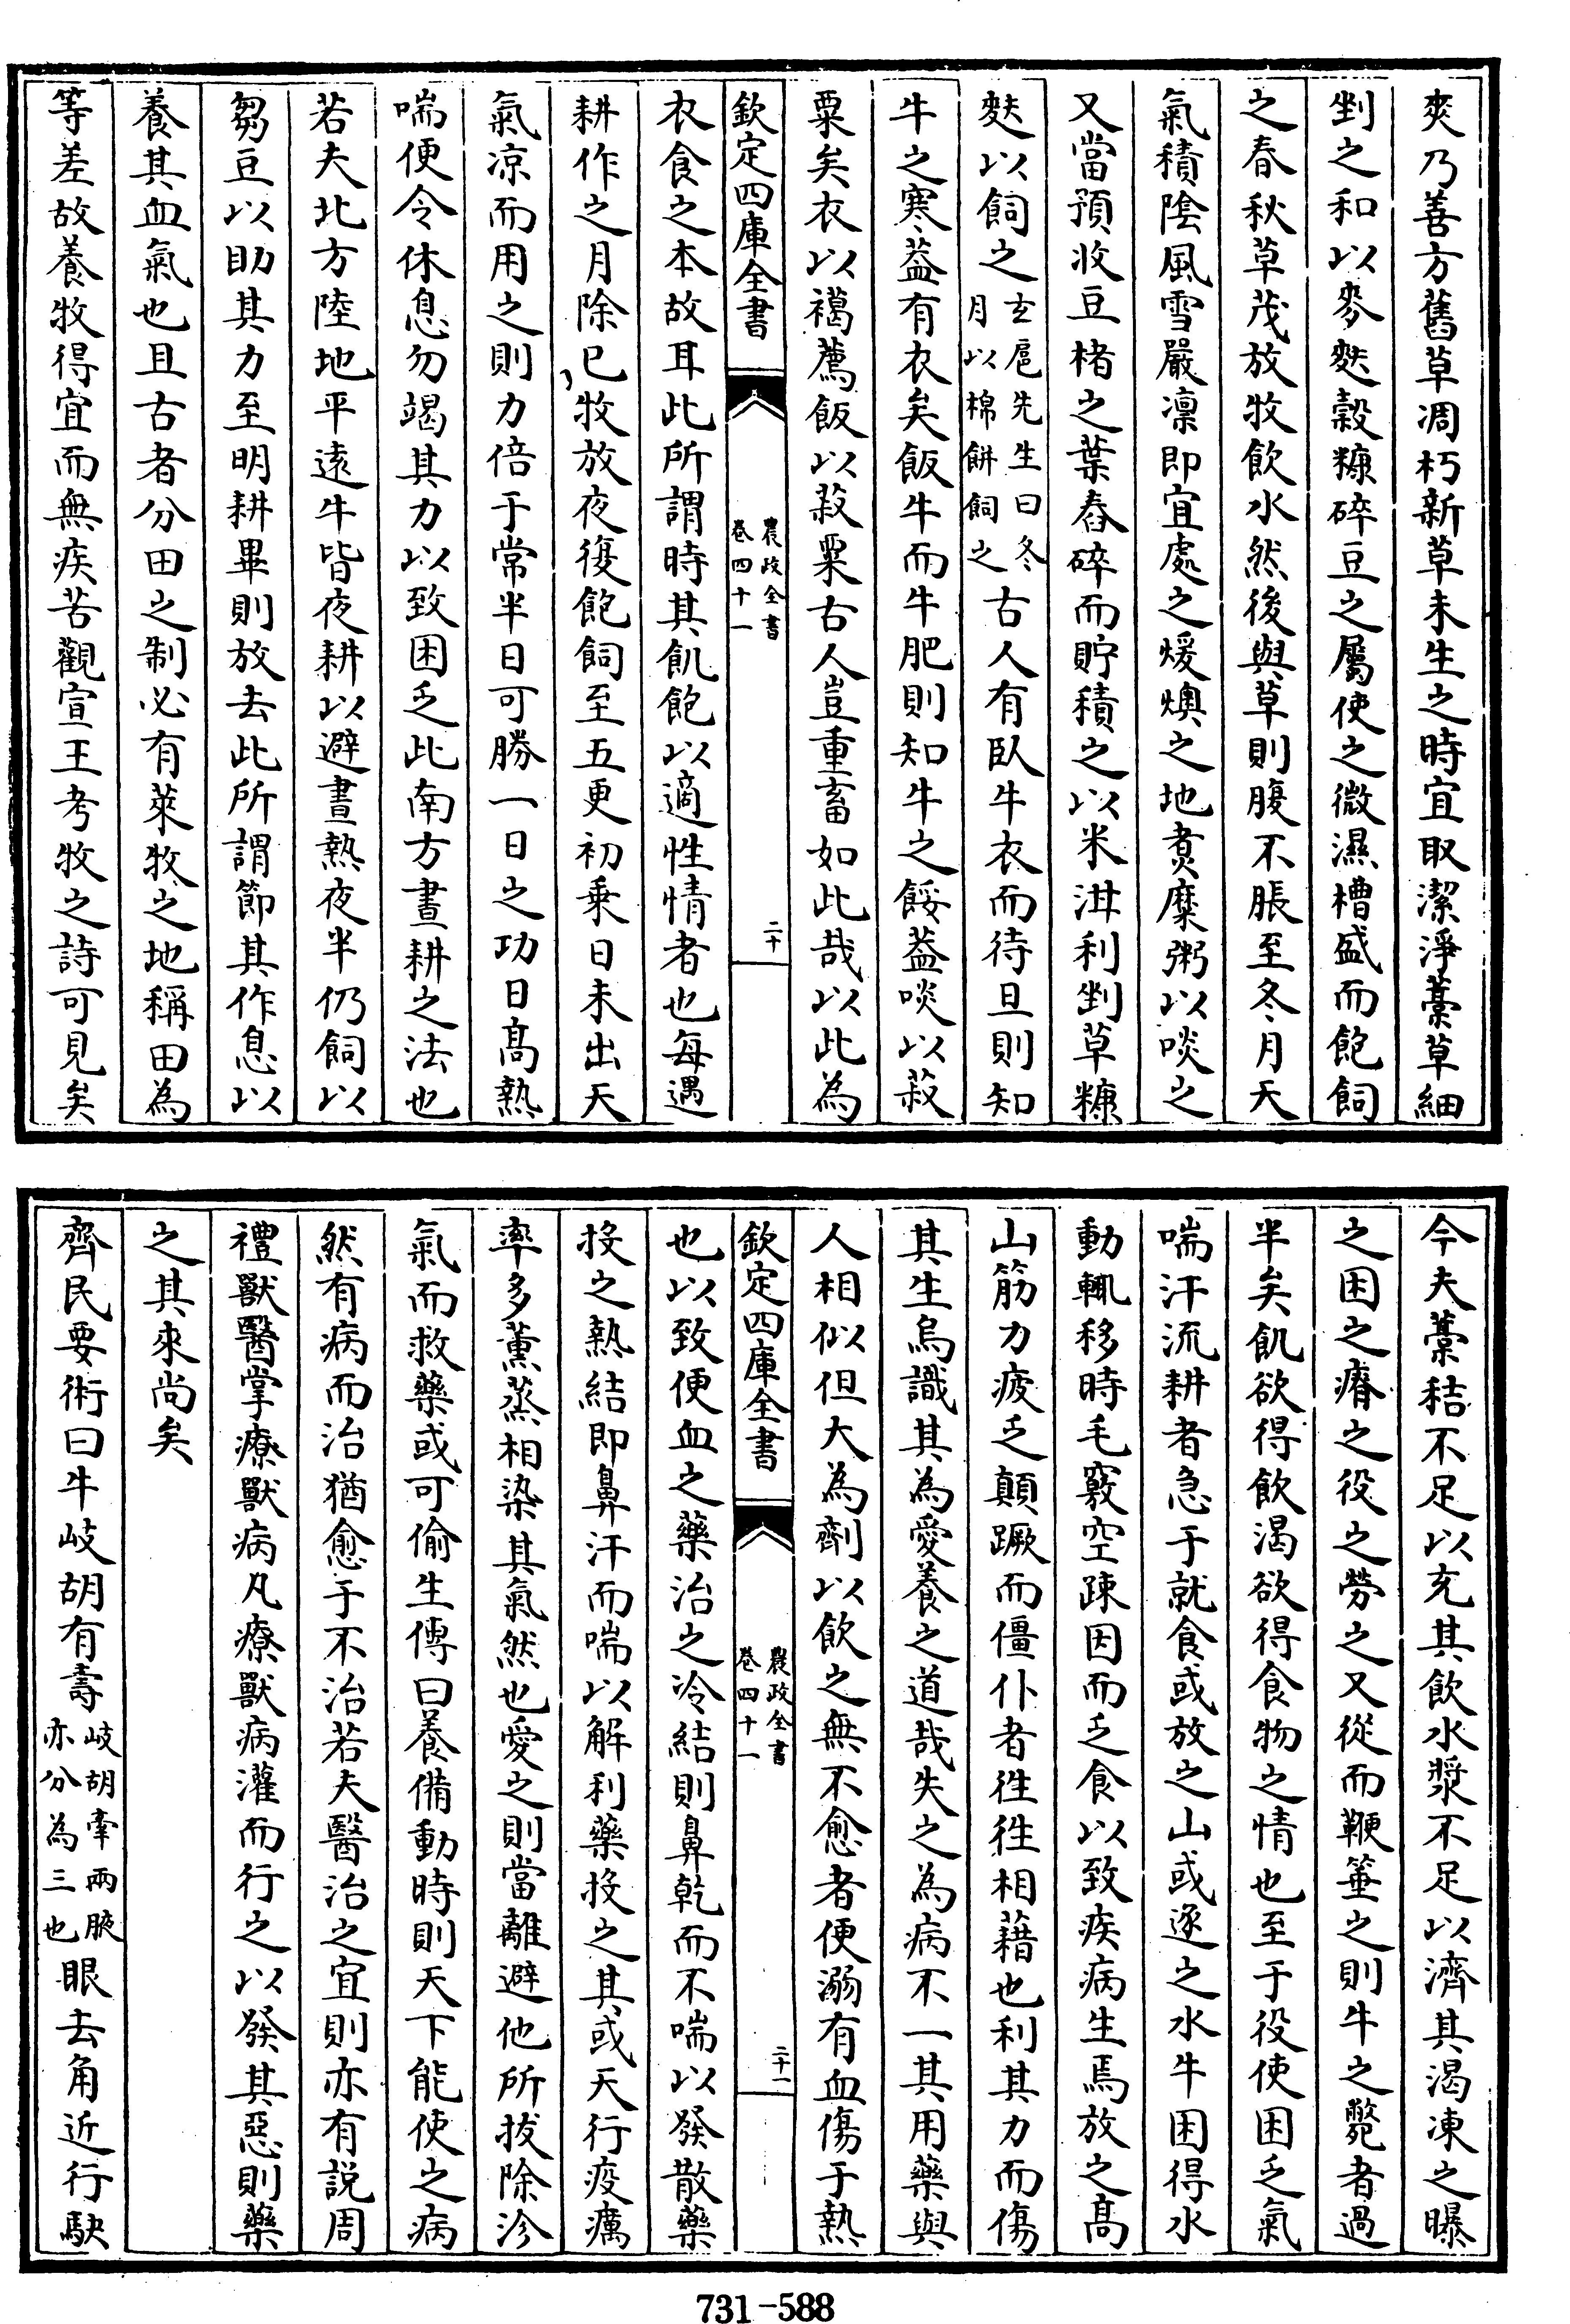 爽乃善方舊草凋朽新草未生之時宜取潔淨藁草細
剉之和以麥麩榖糠碎豆之屬使之微濕槽盛而飽飼
之春秋草茂放牧飲水然後與草則腹不脹至冬月天
氣積陰風雪嚴凛即宜處之煖燠之地煑糜粥以啖之
又當預收豆楮之葉舂碎而貯積之以米泔和剉草糠
麩以飼之玄扈先生曰冬月以棉餅飼之古人有臥牛衣而待旦則知
牛之寒葢有衣矣飯牛而牛肥則知牛之餒葢啖以菽
粟矣衣以褐薦飯以菽粟古人豈重畜如此哉以此為
欽定四庫全書
農政全書
卷四十一
二十
衣食之本故耳此所謂時其飢飽以適性情者也每遇
耕作之月除已牧放夜復飽飼至五更初乗日未出天
氣凉而用之則力倍于常半日可勝一日之功日髙熱
喘便令休息勿竭其力以致困乏此南方晝耕之法也
若夫北方陸地平逺牛皆夜耕以避晝熱夜半仍飼以
芻豆以助其力至明耕畢則放去此所謂節其作息以
養其血氣也且古者分田之制必有萊牧之地稱田為
等差故養牧得宜而無疾苦觀宣王考牧之詩可見矣
今夫藁秸不足以充其飲水漿不足以濟其渴凍之曝
之困之瘠之役之勞之又從而鞭箠之則牛之斃者過
半矣飢欲得飲渴欲得食物之情也至于役使困乏氣
喘汗流耕者急于就食或放之山或逐之水牛困得水
動輒移時毛竅空疎因而乏食以致疾病生焉放之髙
山筋力疲乏顛蹶而僵仆者徃徃相藉也利其力而傷
其生烏識其為愛養之道哉失之為病不一其用藥與
人相似但大為劑以飲之無不愈者便溺有血傷于熱
欽定四庫全書
農政全書
卷四十一
二十一
也以致便血之藥治之冷結則鼻乾而不喘以發散藥
投之熱結即鼻汗而喘以解利藥投之其或天行疫癘
率多薰蒸相染其氣然也愛之則當離避他所拔除沴
氣而救藥或可偷生傳曰養備動時則天下能使之病
然有病而治猶愈于不治若夫醫治之宜則亦有説周
禮獸醫掌療獸病凡療獸病灌而行之以發其惡則藥
之其來尚矣
齊民要術曰牛岐胡有壽岐胡牽兩腋亦分為三也眼去角近行駃
731-588